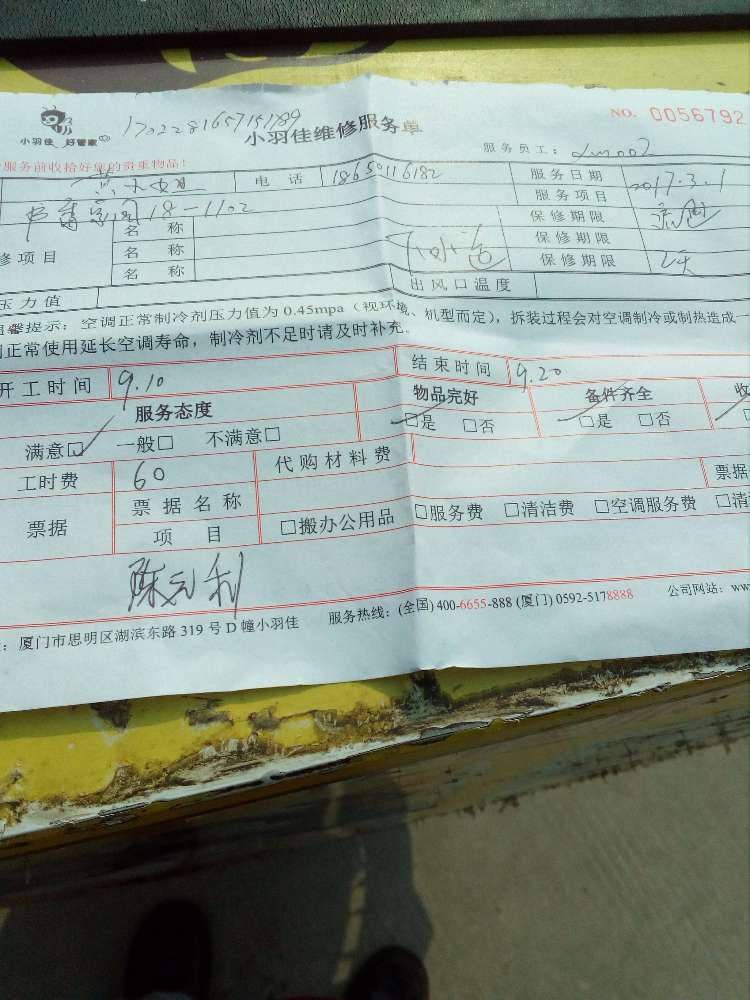 小羽佳 好管家
1702281657151789
小羽佳维修服务单
NO. 0056792
服务前收拾好您的贵重物品!
服务员工:
电话 18650116182 服务日期 2017.3.1
18-1102 服务项目
修项目 名称 保修期限
名称 保修期限
名称 保修期限
压力值 出风口温度
温馨提示: 空调正常制冷剂压力值为 0.45mpa (视环境、机型而定), 拆装过程会对空调制冷或制热造成一
正常使用延长空调寿命, 制冷剂不足时请及时补充。
开工时间 9.10 结束时间 9.20
服务态度 物品完好 备件齐全 收
满意☑ 一般□ 不满意□ □是 □否 □是 □否
工时费 60 代购材料费
票据 票据名称 票据
项目 □搬办公用品 □服务费 □清洁费 □空调服务费 □清
陈元利
: 厦门市思明区湖滨东路 319 号 D 幢小羽佳 服务热线: (全国) 400-6655-888 (厦门) 0592-5178888 公司网站: ww